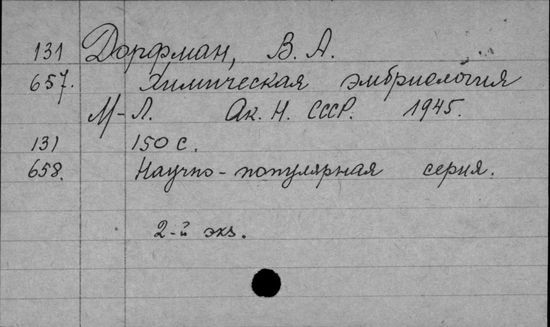 131 Дорфман, В. А.
657. Химическая эмбриология
М-Л. Ак. Н. СССР. 1945.
131 150 с.
658. Научно-популярная серия.
2-й экз.